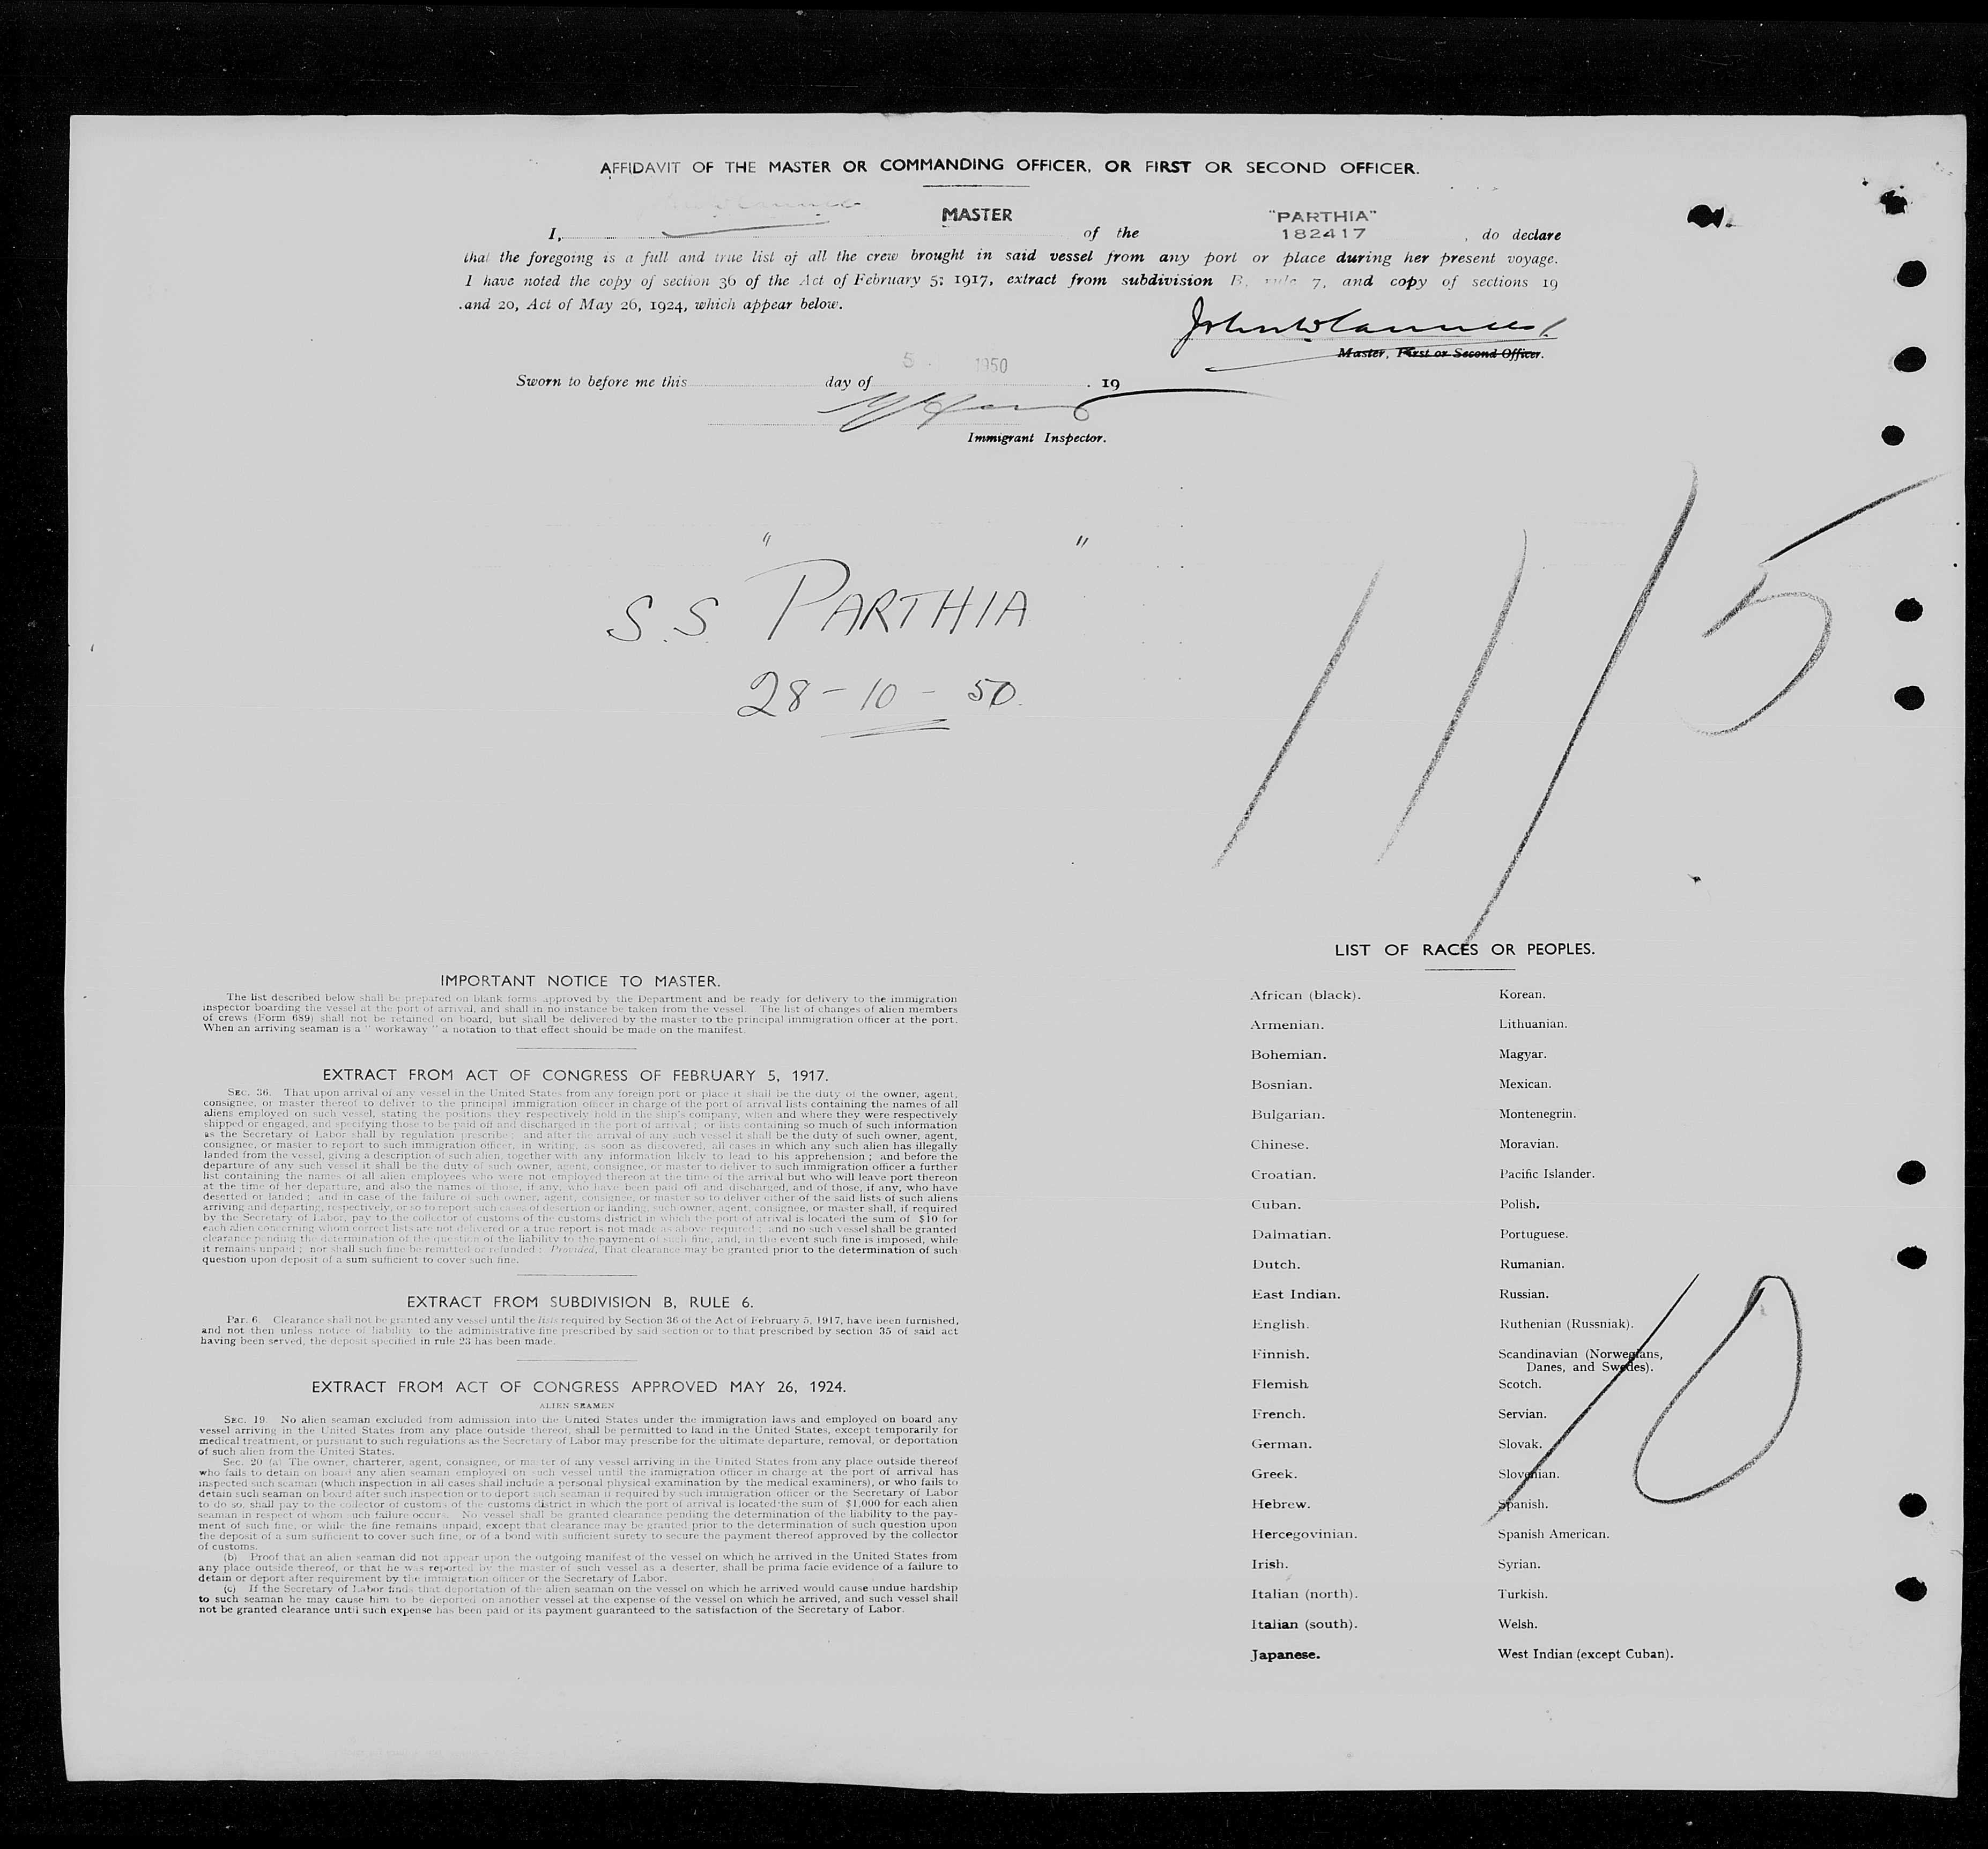 AFFIDAVIT OF THE MASTER OR COMMANDING OFFICER, OR FIRST OR SECOND OFFICER.
MASTER "PARTHIA"
I, of the 182417, do declare
that the foregoing is a full and true list of all the crew brought in said vessel from any port or place during her present voyage.
I have noted the copy of section 36 of the Act of February 5; 1917, extract from subdivision B, rule 7, and copy of sections 19
and 20, Act of May 26, 1924, which appear below.
Master, First or Second Officer.
5 1950
Sworn to before me this day of . 19
Immigrant Inspector.
S.S. "PARTHIA"
28-10-50.
11/5
LIST OF RACES OR PEOPLES.
African (black). Korean.
Armenian. Lithuanian.
Bohemian. Magyar.
Bosnian. Mexican.
Bulgarian. Montenegrin.
Chinese. Moravian.
Croatian. Pacific Islander.
Cuban. Polish.
Dalmatian. Portuguese.
Dutch. Rumanian.
East Indian. Russian.
English. Ruthenian (Russniak).
Finnish. Scandinavian (Norwegians,
Danes, and Swedes).
Flemish Scotch.
French. Servian.
German. Slovak.
Greek. Slovenian.
Hebrew. Spanish.
Hercegovinian. Spanish American.
Irish. Syrian.
Italian (north). Turkish.
Italian (south). Welsh.
Japanese. West Indian (except Cuban).
10
IMPORTANT NOTICE TO MASTER.
The list described below shall be prepared on blank forms approved by the Department and be ready for delivery to the immigration
inspector boarding the vessel at the port of arrival, and shall in no instance be taken from the vessel. The list of changes of alien members
of crews (Form 689) shall not be retained on board, but shall be delivered by the master to the principal immigration officer at the port.
When an arriving seaman is a "workaway" a notation to that effect should be made on the manifest.
EXTRACT FROM ACT OF CONGRESS OF FEBRUARY 5, 1917.
SEC. 36. That upon arrival of any vessel in the United States from any foreign port or place it shall be the duty of the owner, agent,
consignee, or master thereof to deliver to the principal immigration officer in charge of the port of arrival lists containing the names of all
aliens employed on such vessel, stating the positions they respectively hold in the ship's company, when and where they were respectively
shipped or engaged, and specifying those to be paid off and discharged in the port of arrival; or lists containing so much of such information
as the Secretary of Labor shall by regulation prescribe; and after the arrival of any such vessel it shall be the duty of such owner, agent,
consignee, or master to report to such immigration officer, in writing, as soon as discovered, all cases in which any such alien has illegally
landed from the vessel, giving a description of such alien, together with any information likely to lead to his apprehension; and before the
departure of any such vessel it shall be the duty of such owner, agent, consignee, or master to deliver to such immigration officer a further
list containing the names of all alien employees who were not employed thereon at the time of the arrival but who will leave port thereon
at the time of her departure, and also the names of those, if any, who have been paid off and discharged, and of those, if any, who have
deserted or landed; and in case of the failure of such owner, agent, consignee, or master so to deliver either of the said lists of such aliens
arriving and departing, respectively, or so to report such cases of desertion or landing, such owner, agent, consignee, or master shall, if required
by the Secretary of Labor, pay to the collector of customs of the customs district in which the port of arrival is located the sum of $10 for
each alien concerning whom correct lists are not delivered or a true report is not made as above required; and no such vessel shall be granted
clearance pending the determination of the question of the liability to the payment of such fine, and, in the event such fine is imposed, while
it remains unpaid; nor shall such fine be remitted or refunded: Provided, That clearance may be granted prior to the determination of such
question upon deposit of a sum sufficient to cover such fine.
EXTRACT FROM SUBDIVISION B, RULE 6.
Par. 6. Clearance shall not be granted any vessel until the lists required by Section 36 of the Act of February 5, 1917, have been furnished,
and not then unless notice of liability to the administrative fine prescribed by said section or to that prescribed by section 35 of said act
having been served, the deposit specified in rule 23 has been made.
EXTRACT FROM ACT OF CONGRESS APPROVED MAY 26, 1924.
ALIEN SEAMEN
SEC. 19. No alien seaman excluded from admission into the United States under the immigration laws and employed on board any
vessel arriving in the United States from any place outside thereof, shall be permitted to land in the United States, except temporarily for
medical treatment, or pursuant to such regulations as the Secretary of Labor may prescribe for the ultimate departure, removal, or deportation
of such alien from the United States.
Sec. 20 (a) The owner, charterer, agent, consignee, or master of any vessel arriving in the United States from any place outside thereof
who fails to detain on board any alien seaman employed on such vessel until the immigration officer in charge at the port of arrival has
inspected such seaman (which inspection in all cases shall include a personal physical examination by the medical examiners), or who fails to
detain such seaman on board after such inspection or to deport such seaman if required by such immigration officer or the Secretary of Labor
to do so, shall pay to the collector of customs of the customs district in which the port of arrival is located the sum of $1,000 for each alien
seaman in respect of whom such failure occurs. No vessel shall be granted clearance pending the determination of the liability to the pay-
ment of such fine, or while the fine remains unpaid, except that clearance may be granted prior to the determination of such question upon
the deposit of a sum sufficient to cover such fine, or of a bond with sufficient surety to secure the payment thereof approved by the collector
of customs.
(b) Proof that an alien seaman did not appear upon the outgoing manifest of the vessel on which he arrived in the United States from
any place outside thereof, or that he was reported by the master of such vessel as a deserter, shall be prima facie evidence of a failure to
detain or deport after requirement by the immigration officer or the Secretary of Labor.
(c) If the Secretary of Labor finds that deportation of the alien seaman on the vessel on which he arrived would cause undue hardship
to such seaman he may cause him to be deported on another vessel at the expense of the vessel on which he arrived, and such vessel shall
not be granted clearance until such expense has been paid or its payment guaranteed to the satisfaction of the Secretary of Labor.